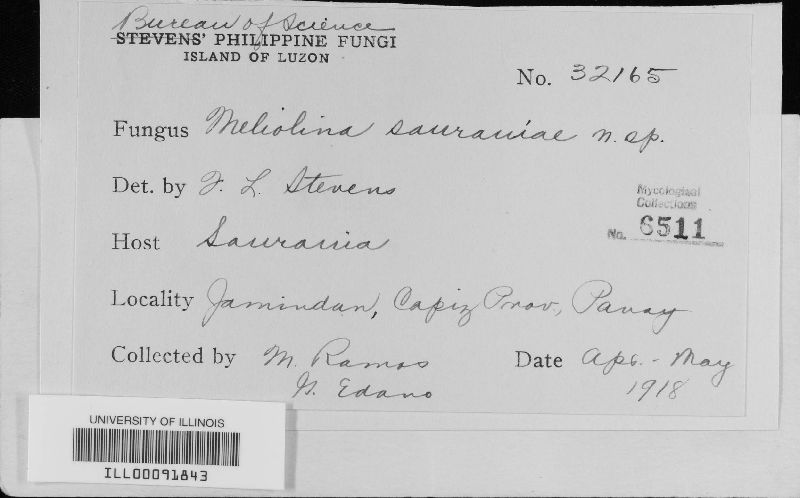 Bureau of Science
STEVENS' PHILIPPINE FUNGI
ISLAND OF LUZON
No. 32165
Fungus Meliolina saurauiae n. sp.
Det. by F. L. Stevens
Mycological
Collections
No. 6511
Host Saurauia
Locality Jamindan, Capiz Prov., Panay
Collected by M. Ramos
G. Edano
Date Apr. - May
1918
UNIVERSITY OF ILLINOIS
ILL00091843